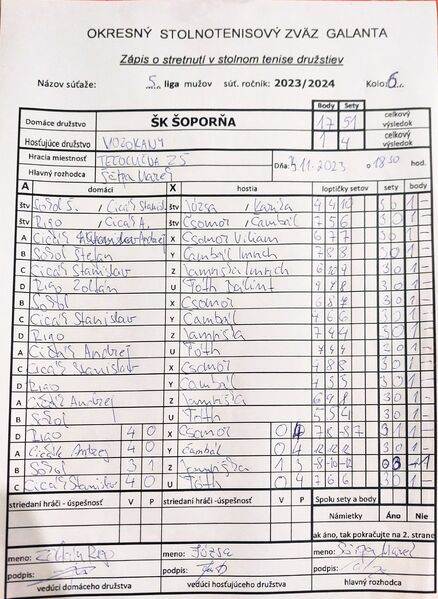 OKRESNÝ STOLNOTENISOVÝ ZVÄZ GALANTA
Zápis o stretnutí v stolnom tenise družstiev
Názov súťaže: 5. liga mužov súť. ročník: 2023/2024 Kolo: 6.
Body Sety
Domáce družstvo ŠK ŠOPORŇA 17 51 celkový výsledok
Hosťujúce družstvo VOZOKANY 1 4 celkový výsledok
Hracia miestnosť TELOCVIČŇA ZŠ Dňa: 3.11.2023 o 18:30 hod.
Hlavný rozhodca
A domáci X hostia loptičky setov sety body
štv Sokol S., Cicák Stanisl. štv Józsa, 4 4 10 3 0 1 -
štv Rigo, Cicák A. štv Csomor, Cambál 7 5 6 3 0 1 -
A Cicák Andrej X Csomor Viliam 6 7 7 3 0 1 -
B Sokol Štefan Y Cambál Imrich 7 8 3 3 0 1 -
C Cicák Stanislav Z Imrich 6 10 9 3 0 1 -
D Rigo Zoltán U Tóth 9 4 8 3 0 1 -
B Sokol X Csomor 6 8 7 3 0 1 -
C Cicák Stanislav Y Cambál 4 6 6 3 0 1 -
D Rigo Z 7 4 4 3 0 1 -
A Cicák Andrej U Tóth 7 4 4 3 0 1 -
C Cicák Stanislav X Csomor 4 8 8 3 0 1 -
D Rigo Y Cambál 4 3 5 3 0 1 -
A Cicák Andrej Z 6 9 8 3 0 1 -
B Sokol U Tóth 5 5 4 3 0 1 -
V P V P
D Rigo 4 0 X Csomor 0 4 3 1 1 -
A Cicák Andrej 4 0 Y Cambál 0 4 3 0 1 -
B Sokol 3 1 Z 1 3 -8 -10 -12 0 3 - 1
C Cicák Stanislav 4 0 U Tóth 0 4 3 0 1 -
striedaní hráči - úspešnosť V P striedaní hráči - úspešnosť V P Spolu sety a body
Námietky Áno Nie
ak áno, tak pokračujte na 2. strane
meno: Rigo meno: Józsa meno:
podpis: podpis: podpis:
vedúci domáceho družstva vedúci hosťujúceho družstva hlavný rozhodca